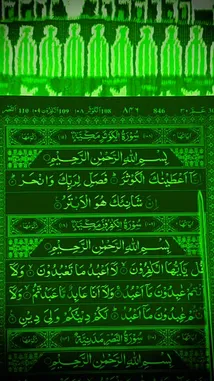 110 109 108 546
سُوْرَةُ الْكَوْثَرِ مَكِّيَّةٌ
بِسْمِ اللهِ الرَّحْمٰنِ الرَّحِيْمِ
اِنَّاۤ اَعْطَيْنٰكَ الْكَوْثَرَ فَصَلِّ لِرَبِّكَ وَانْحَرْ
اِنَّ شَانِئَكَ هُوَ الْاَبْتَرُ
سُوْرَةُ الْكٰفِرُوْنَ مَكِّيَّةٌ
بِسْمِ اللهِ الرَّحْمٰنِ الرَّحِيْمِ
قُلْ يٰۤاَيُّهَا الْكٰفِرُوْنَ لَاۤ اَعْبُدُ مَا تَعْبُدُوْنَ وَلَاۤ
اَنْتُمْ عٰبِدُوْنَ مَاۤ اَعْبُدُ وَلَاۤ اَنَا عَابِدٌ مَّا عَبَدْتُّمْ وَلَاۤ
اَنْتُمْ عٰبِدُوْنَ مَاۤ اَعْبُدُ لَكُمْ دِيْنُكُمْ وَلِيَ دِيْنِ
سُوْرَةُ النَّصْرِ مَدَنِيَّةٌ
بِسْمِ اللهِ الرَّحْمٰنِ الرَّحِيْمِ